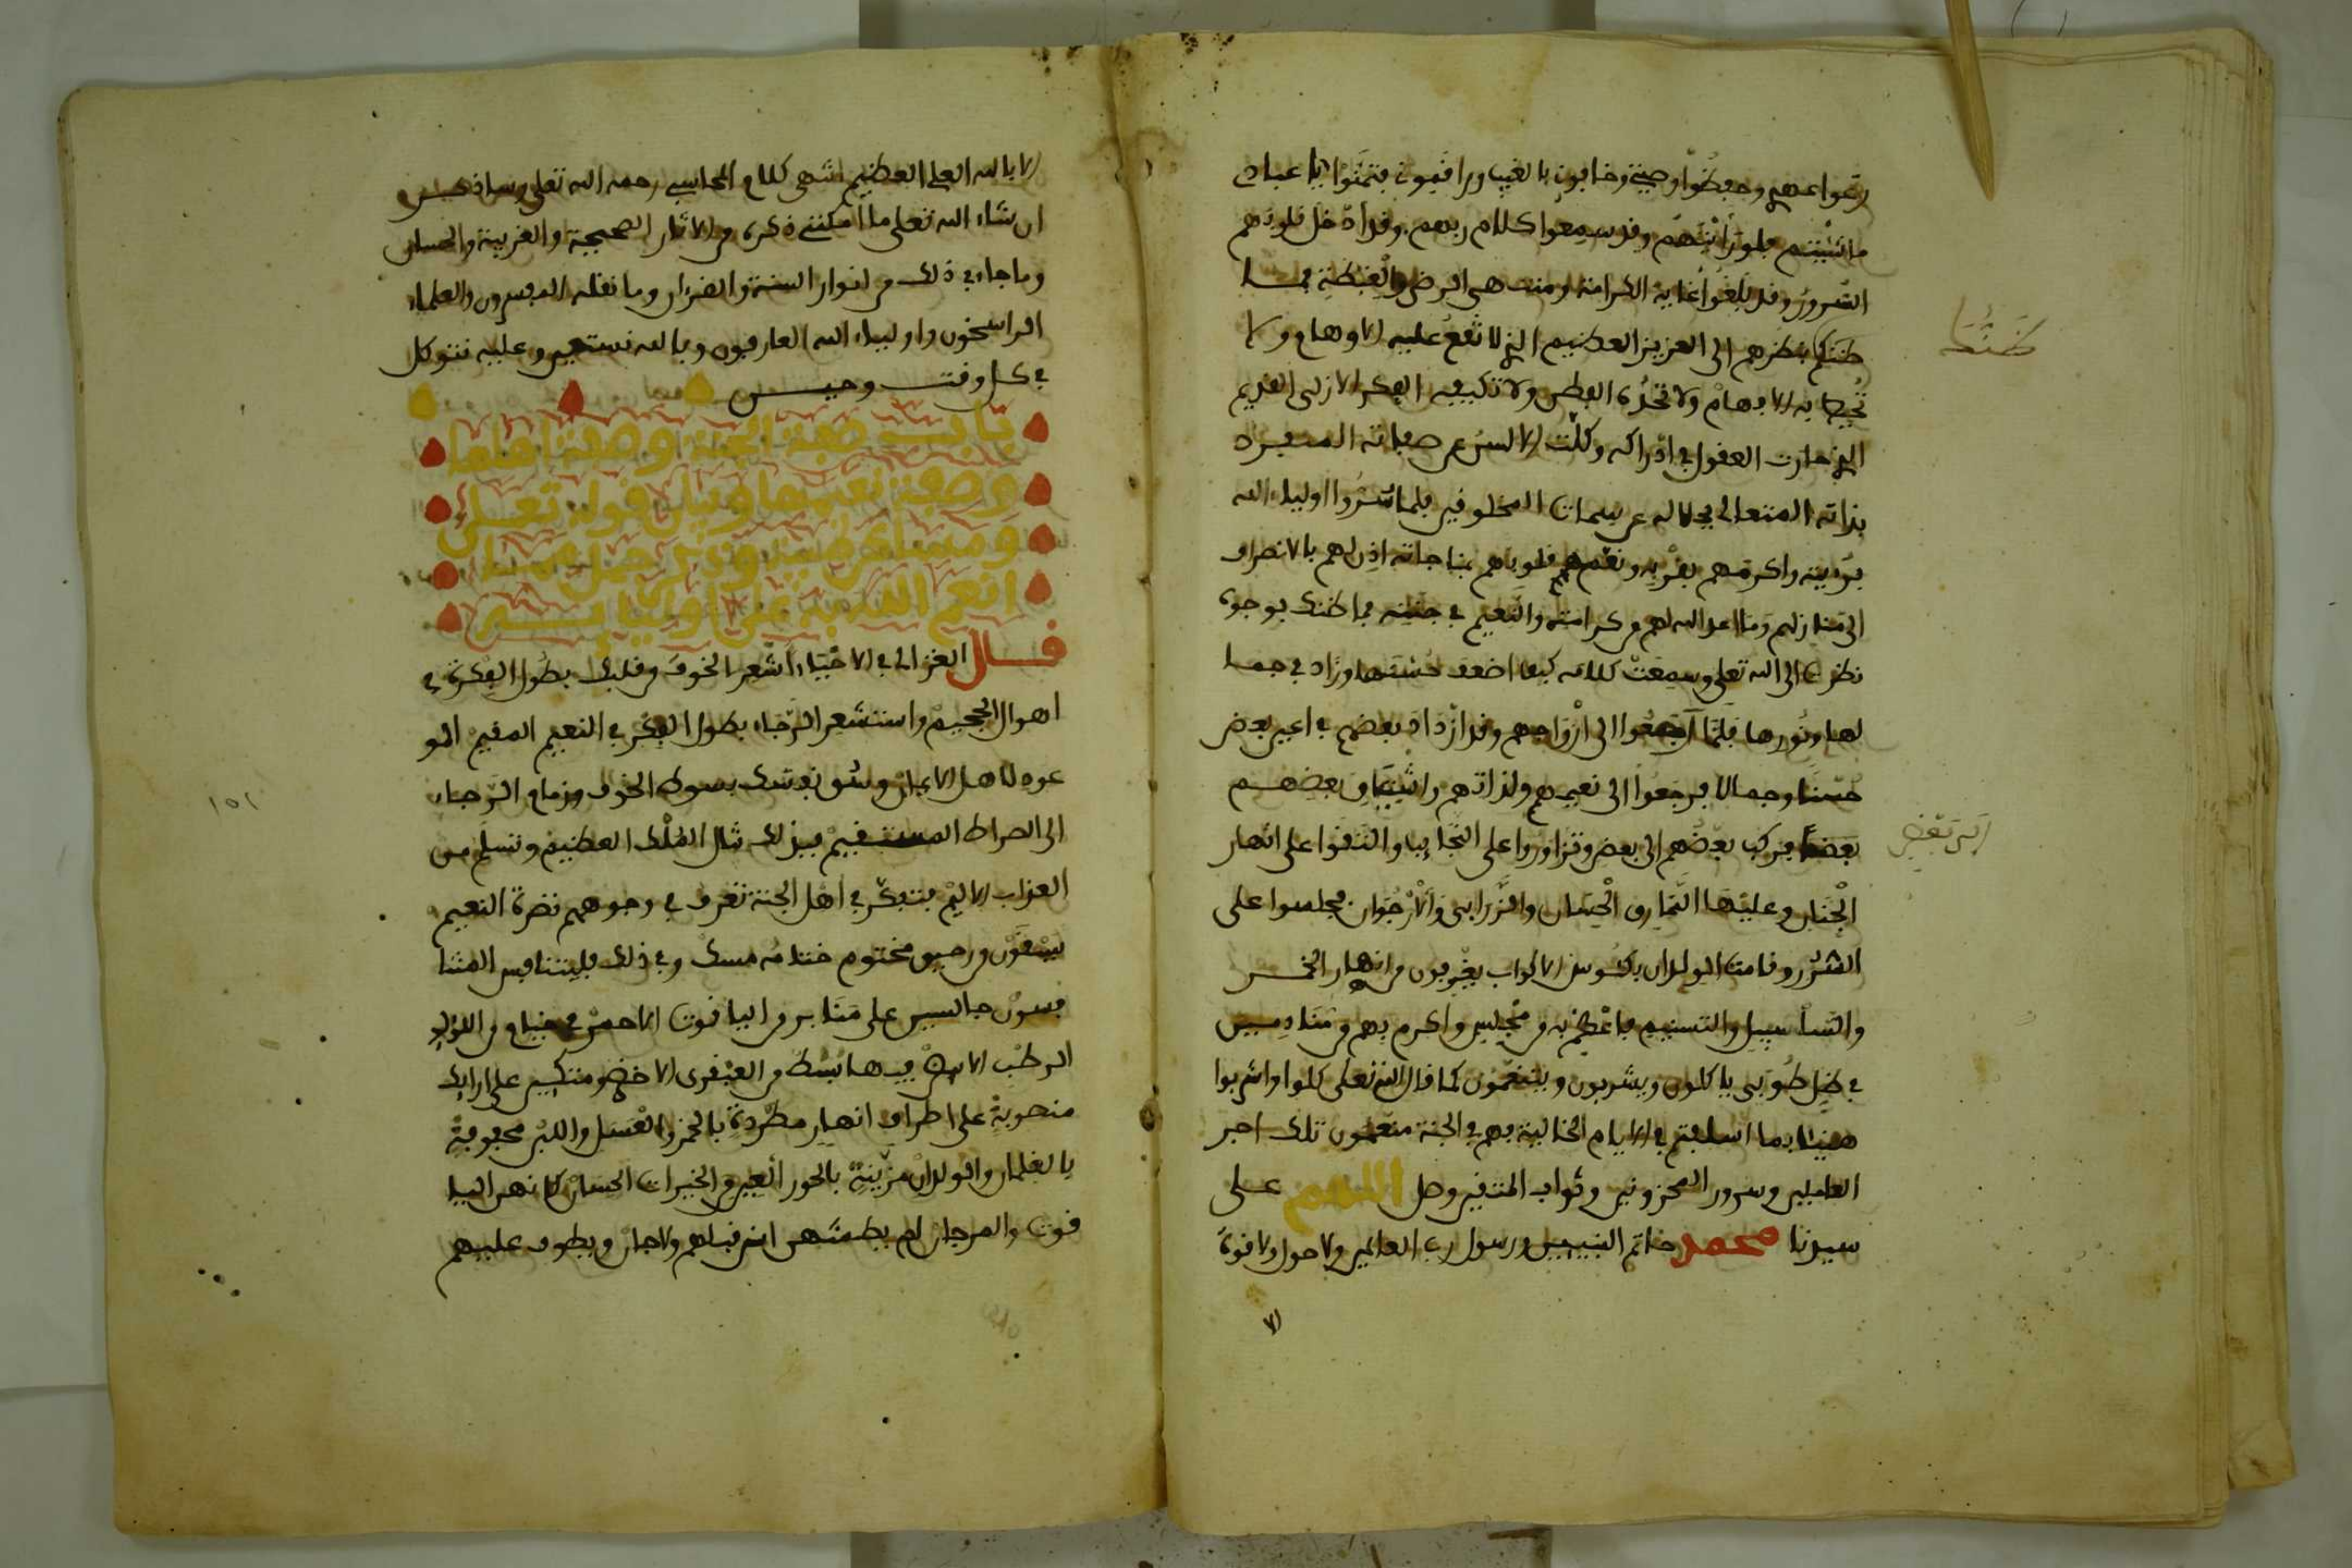 رعوا عهدي وحفظوا وصيتي وخافوني بالغيب وراقبوني فتمنوا يا عبادي
ما شئتم فلو رأيتهم وقد سمعوا كلام ربهم وقد ادخل قلوبهم
السرور وقد بلغوا غاية الكرامة ومنتهى الرضى والغبطة فما
ظنكم بنظرهم الى العزيز العظيم الذي لا تقع عليه الاوهام ولا
تحيط به الافهام ولا تحده الفطن ولا تكيفه الفكر الازلي القديم
الذي حارت العقول في ادراكه وكلت الالسن عن صفاته المنفرد
بذاته المتعالي بجلاله عن سمات المخلوقين فلما سروا اولياء الله
برؤيته واكرمهم بقربه ونعم قلوبهم بمناجاته اذن لهم بالانصراف
الى منازلهم وما اعد الله لهم من كرامته والنعيم في جنته فما ظنك بوجوه
نظرت الى الله تعلى وسمعت كلامه كيف اضعف حسنها وزاد في جما
لها ونورها فلما رجعوا الى ازواجهم وقد ازداد بعضهم في اعين بعض
حسنا وجمالا فرجعوا الى نعيمهم ولذاتهم واشتياق بعضهم
بعضا فركب بعضهم الى بعض وتزاوروا على النجايب والتقوا على انهار
الجنان وعليها النمارق الحسان والزرابي والارجوان فجلسوا على
السرر وقامت الولدان بكئوس الاكواب يغرفون من انهار الخمر
والسلسبيل والتسنيم فاعظم به من مجلس واكرم بهم من منادمين
في ظل طوبى ياكلون ويشربون ويتنعمون كما قال الله تعلى كلوا واشربوا
هنيئا بما اسلفتم في الايام الخالية فهم في الجنة منعمون تلك اجر
العاملين وسرور المحزونين وثواب المتقين وصل اللهم على
سيدنا محمد خاتم النبيين ورسول رب العالمين ولا حول ولا قوة
الا
ظنك
الى بعض
الا بالله العلي العظيم انتهى كلام المحاسبي رحمه الله تعلى وساذكر
ان شاء الله تعلى ما امكنني ذكره من الاثار الصحيحة والغريبة والحسان
وما جاء في ذلك من انوار السنة والقرءان وما نقله المفسرون والعلماء
الراسخون واولياء الله العارفون وبالله نستعين وعليه نتوكل
في كل وقت وحين
باب صفة الجنة وصفة اهلها
وصفة نعيمها وبيان قوله تعلى
ومساكن طيبة وذكر جمل مما
انعم الله به على اوليايه
قال الغزالي في الاحياء اشعر الخوف من قلبك بطول الفكرة في
اهوال الجحيم واستشعر الرجاء بطول الفكر في النعيم المقيم المو
عود لاهل الايمان وسق نفسك بسوط الخوف وزمام الرجاء
الى الصراط المستقيم فبذلك تنال الملك العظيم وتسلم من
العذاب الاليم فتفكر في اهل الجنة تعرف في وجوههم نضرة النعيم
يسقون من رحيق مختوم ختامه مسك وفي ذلك فليتنافس المتنا
فسون جالسين على منابر من الياقوت الاحمر في خيام من اللؤلؤ
الرطب الابيض فيها بسط من العبقري الاخضر متكئين على ارايك
منصوبة على اطراف انهار مطردة بالخمر والعسل واللبن محفوفة
بالغلمان والولدان مزينة بالحور العين من الخيرات الحسان كانهن اليا
قوت والمرجان لم يطمثهن انس قبلهم ولا جان ويطوف عليهم
١٥١